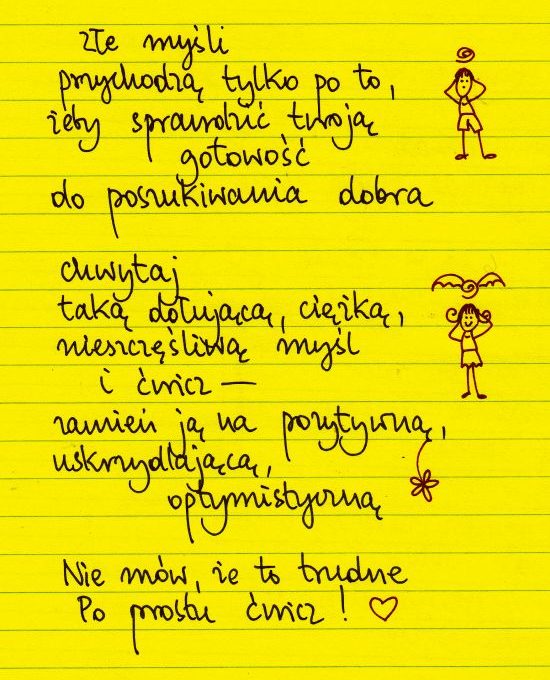 złe myśli
przychodzą tylko po to,
żeby sprawdzić twoją
gotowość
do poszukiwania dobra
chwytaj
taką dołującą, ciężką,
nieszczęśliwą myśl
i ćwicz —
zamień ją na pozytywną,
uskrzydlającą,
optymistyczną
Nie mów, że to trudne
Po prostu ćwicz! ♡